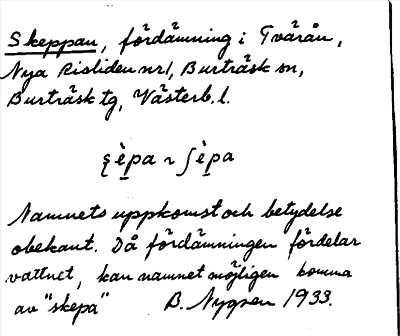 Skeppan, fördämning i Tvärån,
Nya Risliden nr 1, Burträsk sn,
Burträsk tg, Västerb. l.
ʂè̱pa ~ ʃè̱pa
Namnets uppkomst och betydelse
obekant. Då fördämningen fördelar
vattnet, kan namnet möjligen komma
av "skepa" B. Nygren 1933.